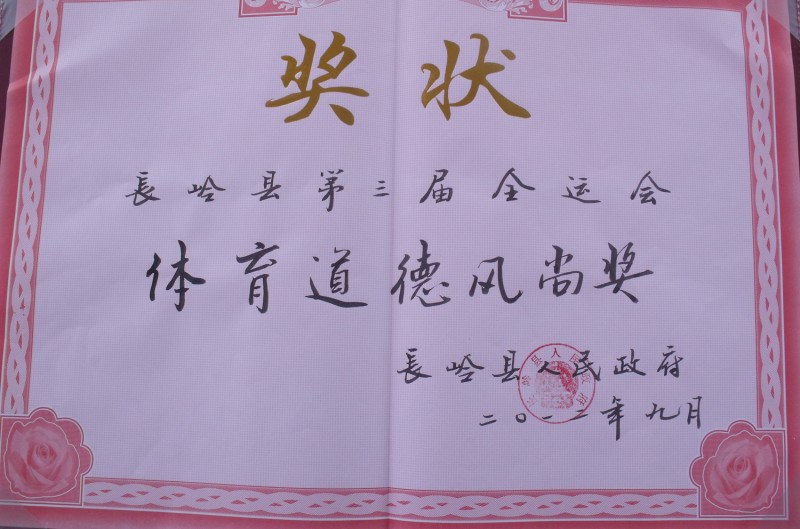 奖状
長岭县第三届全运会
体育道德风尚奖
長岭县人民政府
二〇一二年九月